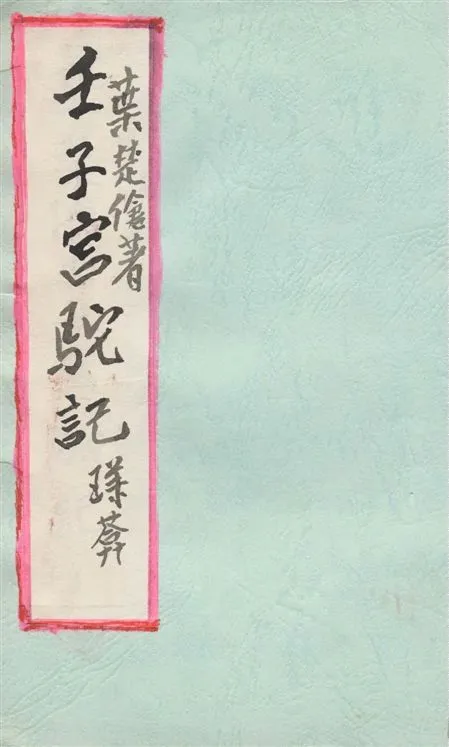 葉楚傖著
壬子宮駝記